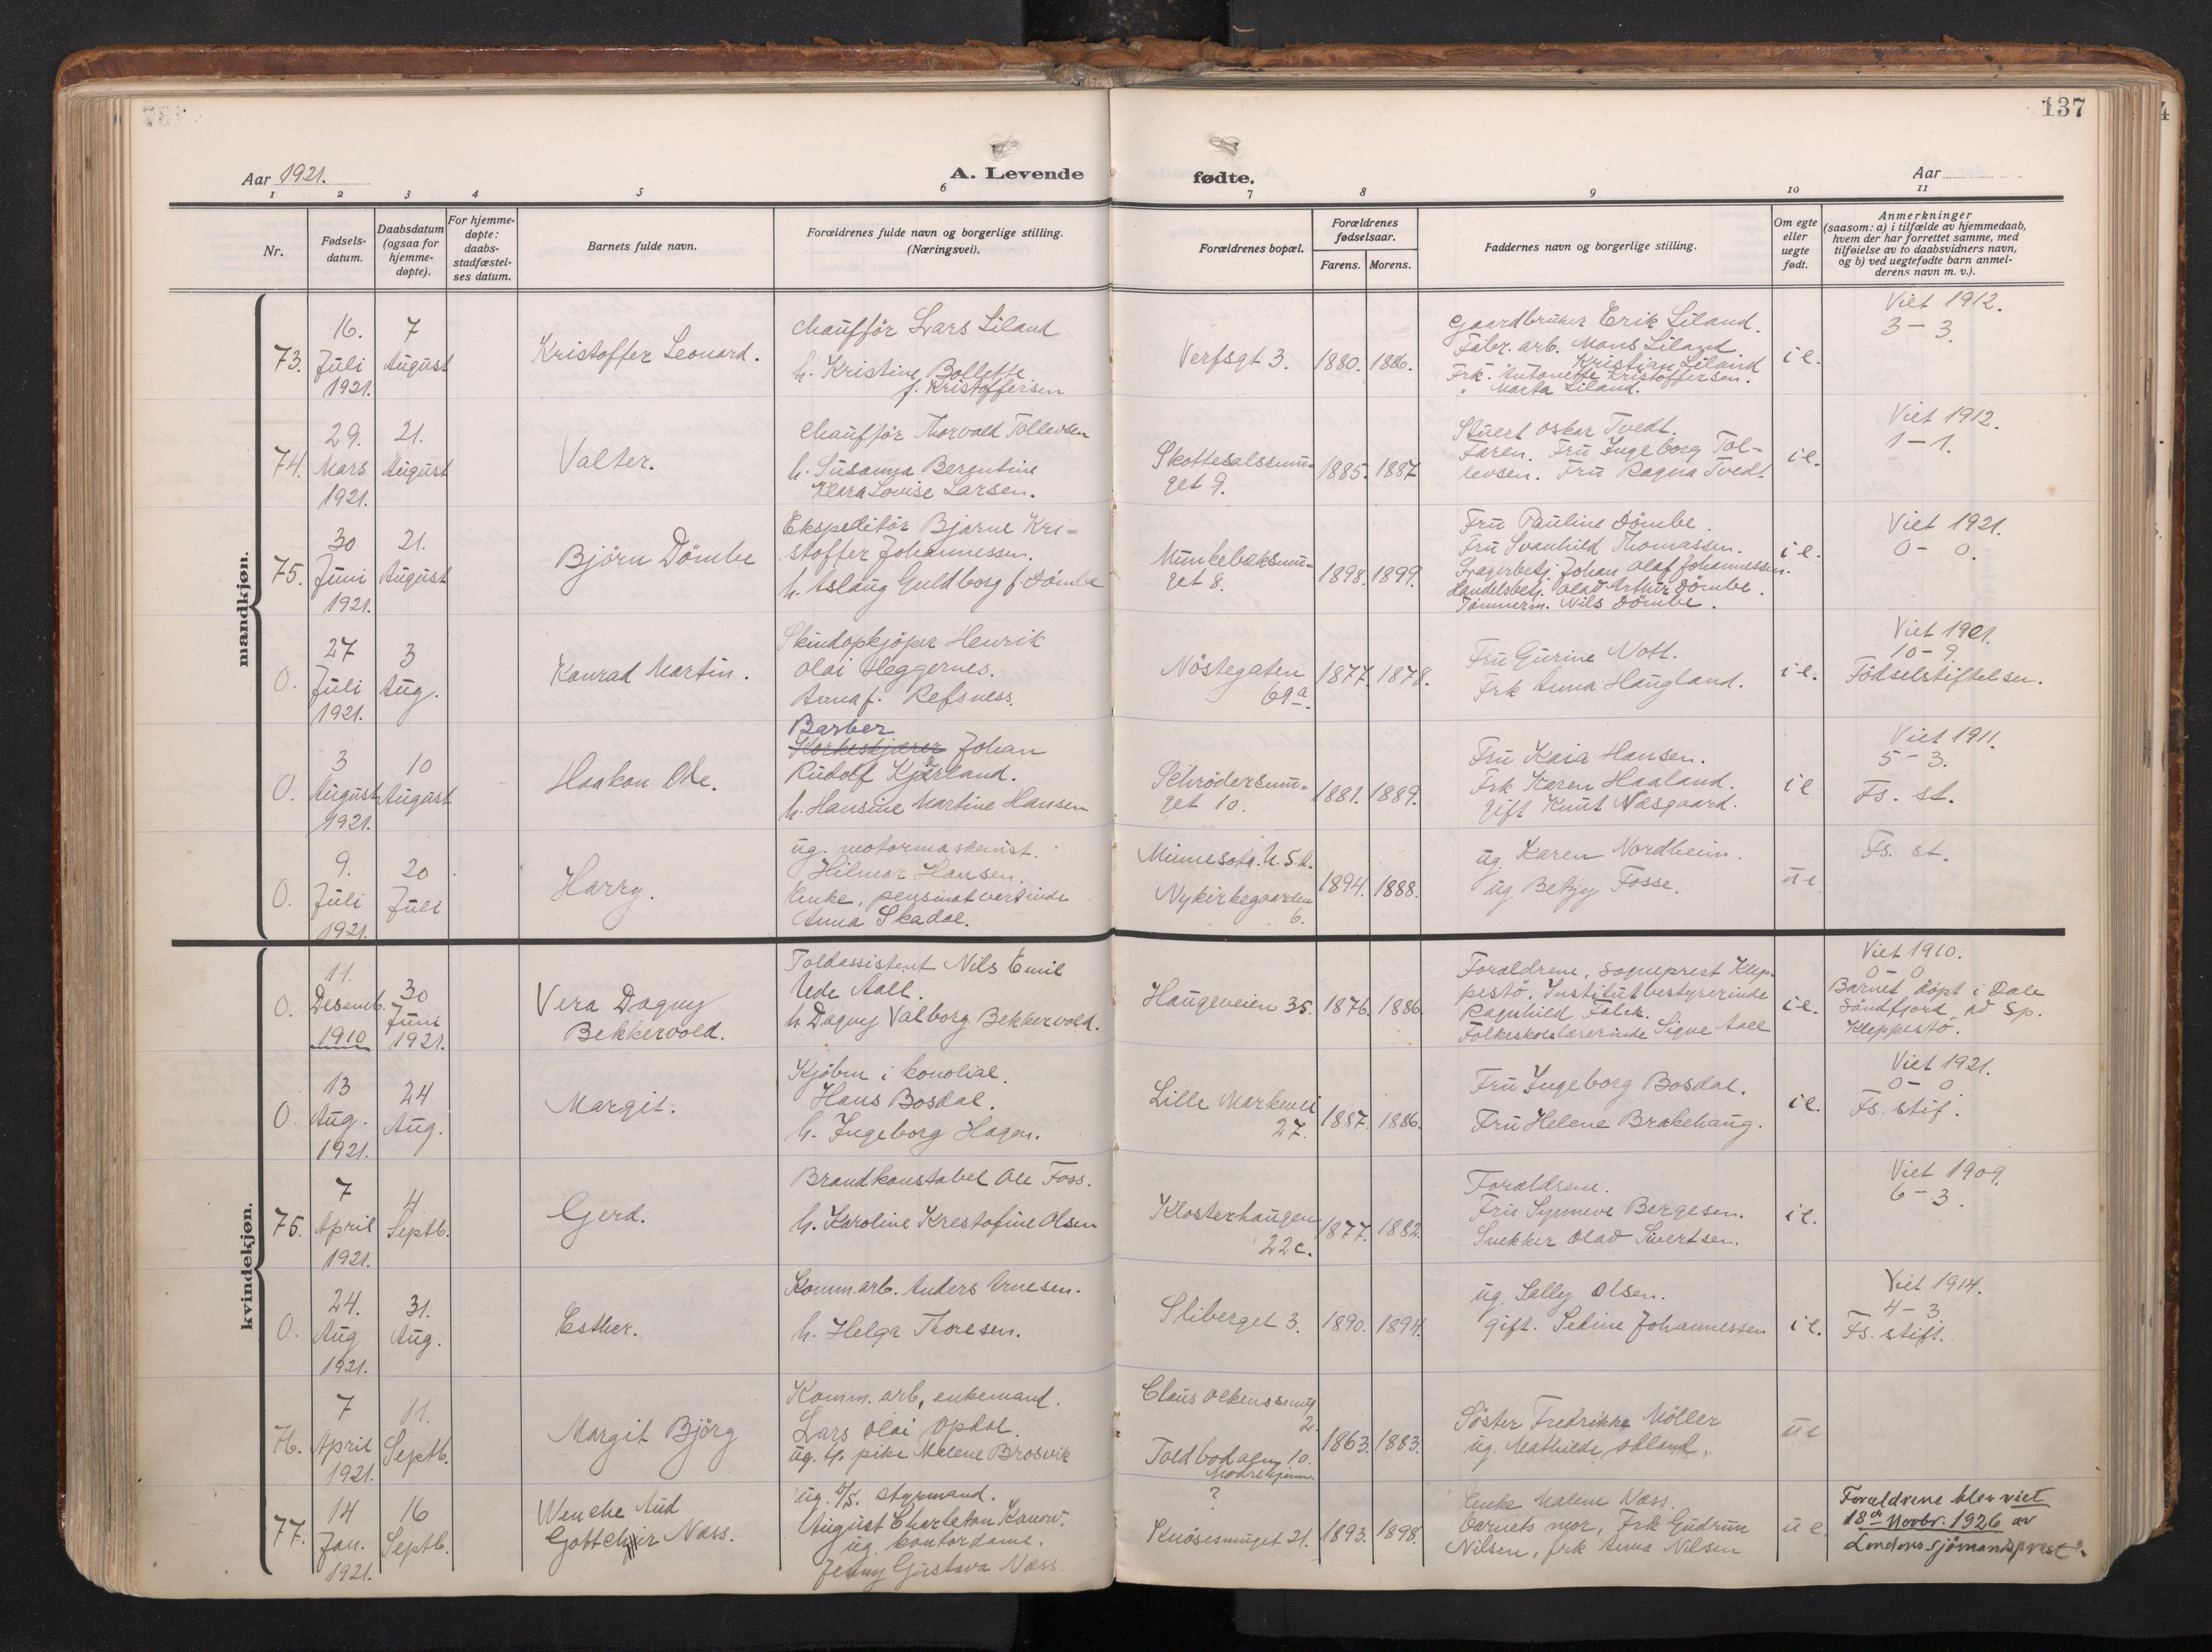 137
Aar 1921.
A. Levende
fødte.
Aar
1 2 3 4 5 6 7 8 9 10 11
Nr.
Fødsels-
datum.
Daabsdatum
(ogsaa for
hjemme-
døpte).
For hjemme-
døpte:
daabs-
stadfæstel-
ses datum.
Barnets fulde navn.
Forældrenes fulde navn og borgerlige stilling.
(Næringsvei).
Forældrenes bopæl.
Forældrenes
fødselsaar.
Farens. Morens.
Faddernes navn og borgerlige stilling.
Om egte
eller
uegte
født.
Anmerkninger
(saasom: a) i tilfælde av hjemmedaab,
hvem der har forrettet samme, med
tilføielse av to daabsvidners navn,
og b) ved uegtefødte barn anmel-
derens navn m. v.).
mandkjøn.
73.
16.
Juli
1921.
7
August
Kristoffer Leonard.
Chauffør Lars Liland
h. Kristine Bollette
f. Kristoffersen
Verfsgt 3.
1880. 1886.
Gaardbruker Erik Liland.
Fabr. arb. Mons Liland
Kristian Liland
Frk. Antonette Kristoffersen.
" Marta Liland.
i e.
Viet 1912.
3 - 3.
74.
29.
Mars
1921.
21.
August
Valter.
Chauffør Thorvald Tollevsen
h. Susanna Berentine
Klara Lovise Larsen.
Skottesalssmu-
get 9.
1885. 1887
Stuert Oskar Tvedt.
Faren. Fru Ingeborg Tol-
levsen. Fru Ragna Tvedt.
i e.
Viet 1912.
1 - 1.
75.
30
Juni
1921.
21.
August
Bjørn Dømbe
Ekspeditør Bjarne Kri-
stoffer Johannessen.
h. Aslaug Guldborg f. Dømbe
Munkebæksmu-
get 8.
1898. 1899.
Fru Pauline Dømbe.
Fru Svanhild Thomassen.
Lagerbetj. Johan Olaf Johannessen.
Handelsbetj. Olav Arthur Dømbe.
Tømmerm. Nils Dømbe.
i e.
Viet 1921.
0 - 0.
0.
27
Juli
1921.
3
Aug.
Konrad Martin.
Skindopkjøper Henrik
Olai Heggernes.
Anna f. Refsness.
Nøstegaten
69a.
1877. 1878.
Fru Gurine Nott.
Frk Anna Haugland.
i e.
Viet 1901.
10 - 9.
Fødselstiftelsen.
0.
3
August
1921.
10
August
Haakon Ole.
Barber
Korkeskjærer Johan
Rudolf Kjærland.
h. Hansine Martine Hansen
Schrødersmu-
get 10.
1881. 1889.
Fru Kaia Hansen.
Frk Karen Haaland.
gift Knut Næsgaard.
i e
Viet 1911.
5 - 3.
Fs. st.
0.
9.
Juli
1921.
20
Juli
Harry.
ug. motormaskinist.
Hilmar Hansen.
Enke, pensinatvertinde
Anna Skadal.
Minnesota. U.S.A.
Nykirkegaarden
6.
1894. 1888.
ug. Karen Nordheim.
ug. Betzy Fosse.
u e
Fs. st.
kvindekjøn.
0.
11.
Desemb.
1910
30
Juni
1921.
Vera Dagny
Bekkervold.
Toldassistent Nils Emil
Uede Aall.
h. Dagny Valborg Bekkervold.
Haugeveien 35.
1876. 1886.
Forældrene, sogneprest Klep-
pestø. Institutbestyrerinde
Ragnhild Falck.
Folkeskolelærerinde Signe Aall
i e.
Viet 1910.
0 - 0
Barnet døpt i Dale
Søndfjord av Sp.
Kleppestø.
0.
13
Aug.
1921.
24
Aug.
Margit.
Kjøbm i konolial.
Hans Bosdal.
h. Ingeborg Hagen.
Lille Markevei
27.
1887. 1886.
Fru Ingeborg Bosdal.
Fru Helene Brakehaug.
i e.
Viet 1921.
0 - 0
Fs. stif.
75.
7
April
1921.
4
Septb.
Gerd.
Brandkonstabel Ole Foss.
h. Karoline Krestofine Olsen
Klosterhaugen
22c.
1877. 1882.
Forældrene.
Fru Synneve Bergesen.
Snekker Olav Sivertsen.
i e.
Viet 1909.
6 - 3.
0.
24.
Aug
1921.
31.
Aug.
Esther.
Komm. arb. Anders Arnesen.
h. Helga Thoresen.
Sliberget 3.
1890. 1894.
ug. Sally Olsen.
gift. Sedine Johannessen
i e.
Viet 1914.
4 - 3
Fs. stift.
76.
7
April
1921.
11.
Septb.
Margit Bjørg
Komm. arb, enkemand.
Lars Olai Opdal.
ug. tj. pike Malene Brosvik
Claus Ockens smug
2.
Toldbodalm. 10.
Mødrehjem.
1863. 1883.
Søster Fredrikke Møller
ug. Mathilde Aaland.
u e
77.
14
Jan.
1921.
16
Septb.
Wenche Aud
Næss.
ug. styrmand.
August Charleton Kanow.
ug. kontordame.
Jenny Gustava Næss.
?
Knøsesmuget 21.
1893. 1898.
Enke Malene Næss.
barnets mor, Frk Gudrun
Nilsen, frk Anna Nilsen
u e.
Forældrene blev viet
18de Novbr. 1926 av
Londons sjømandsprest.